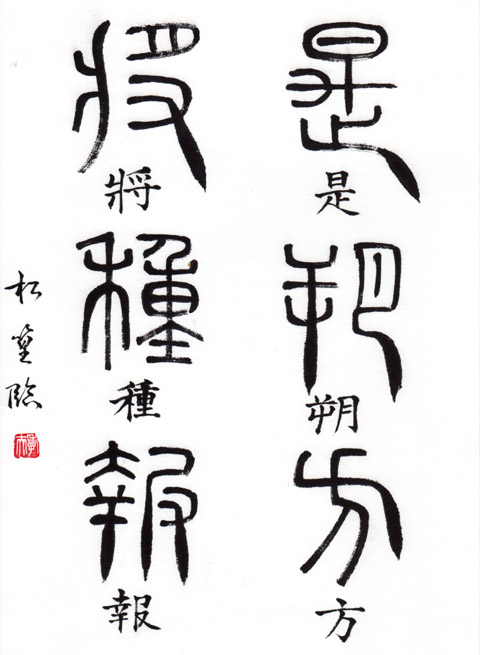 是朔方
是朔方
將種報
將種報
臨